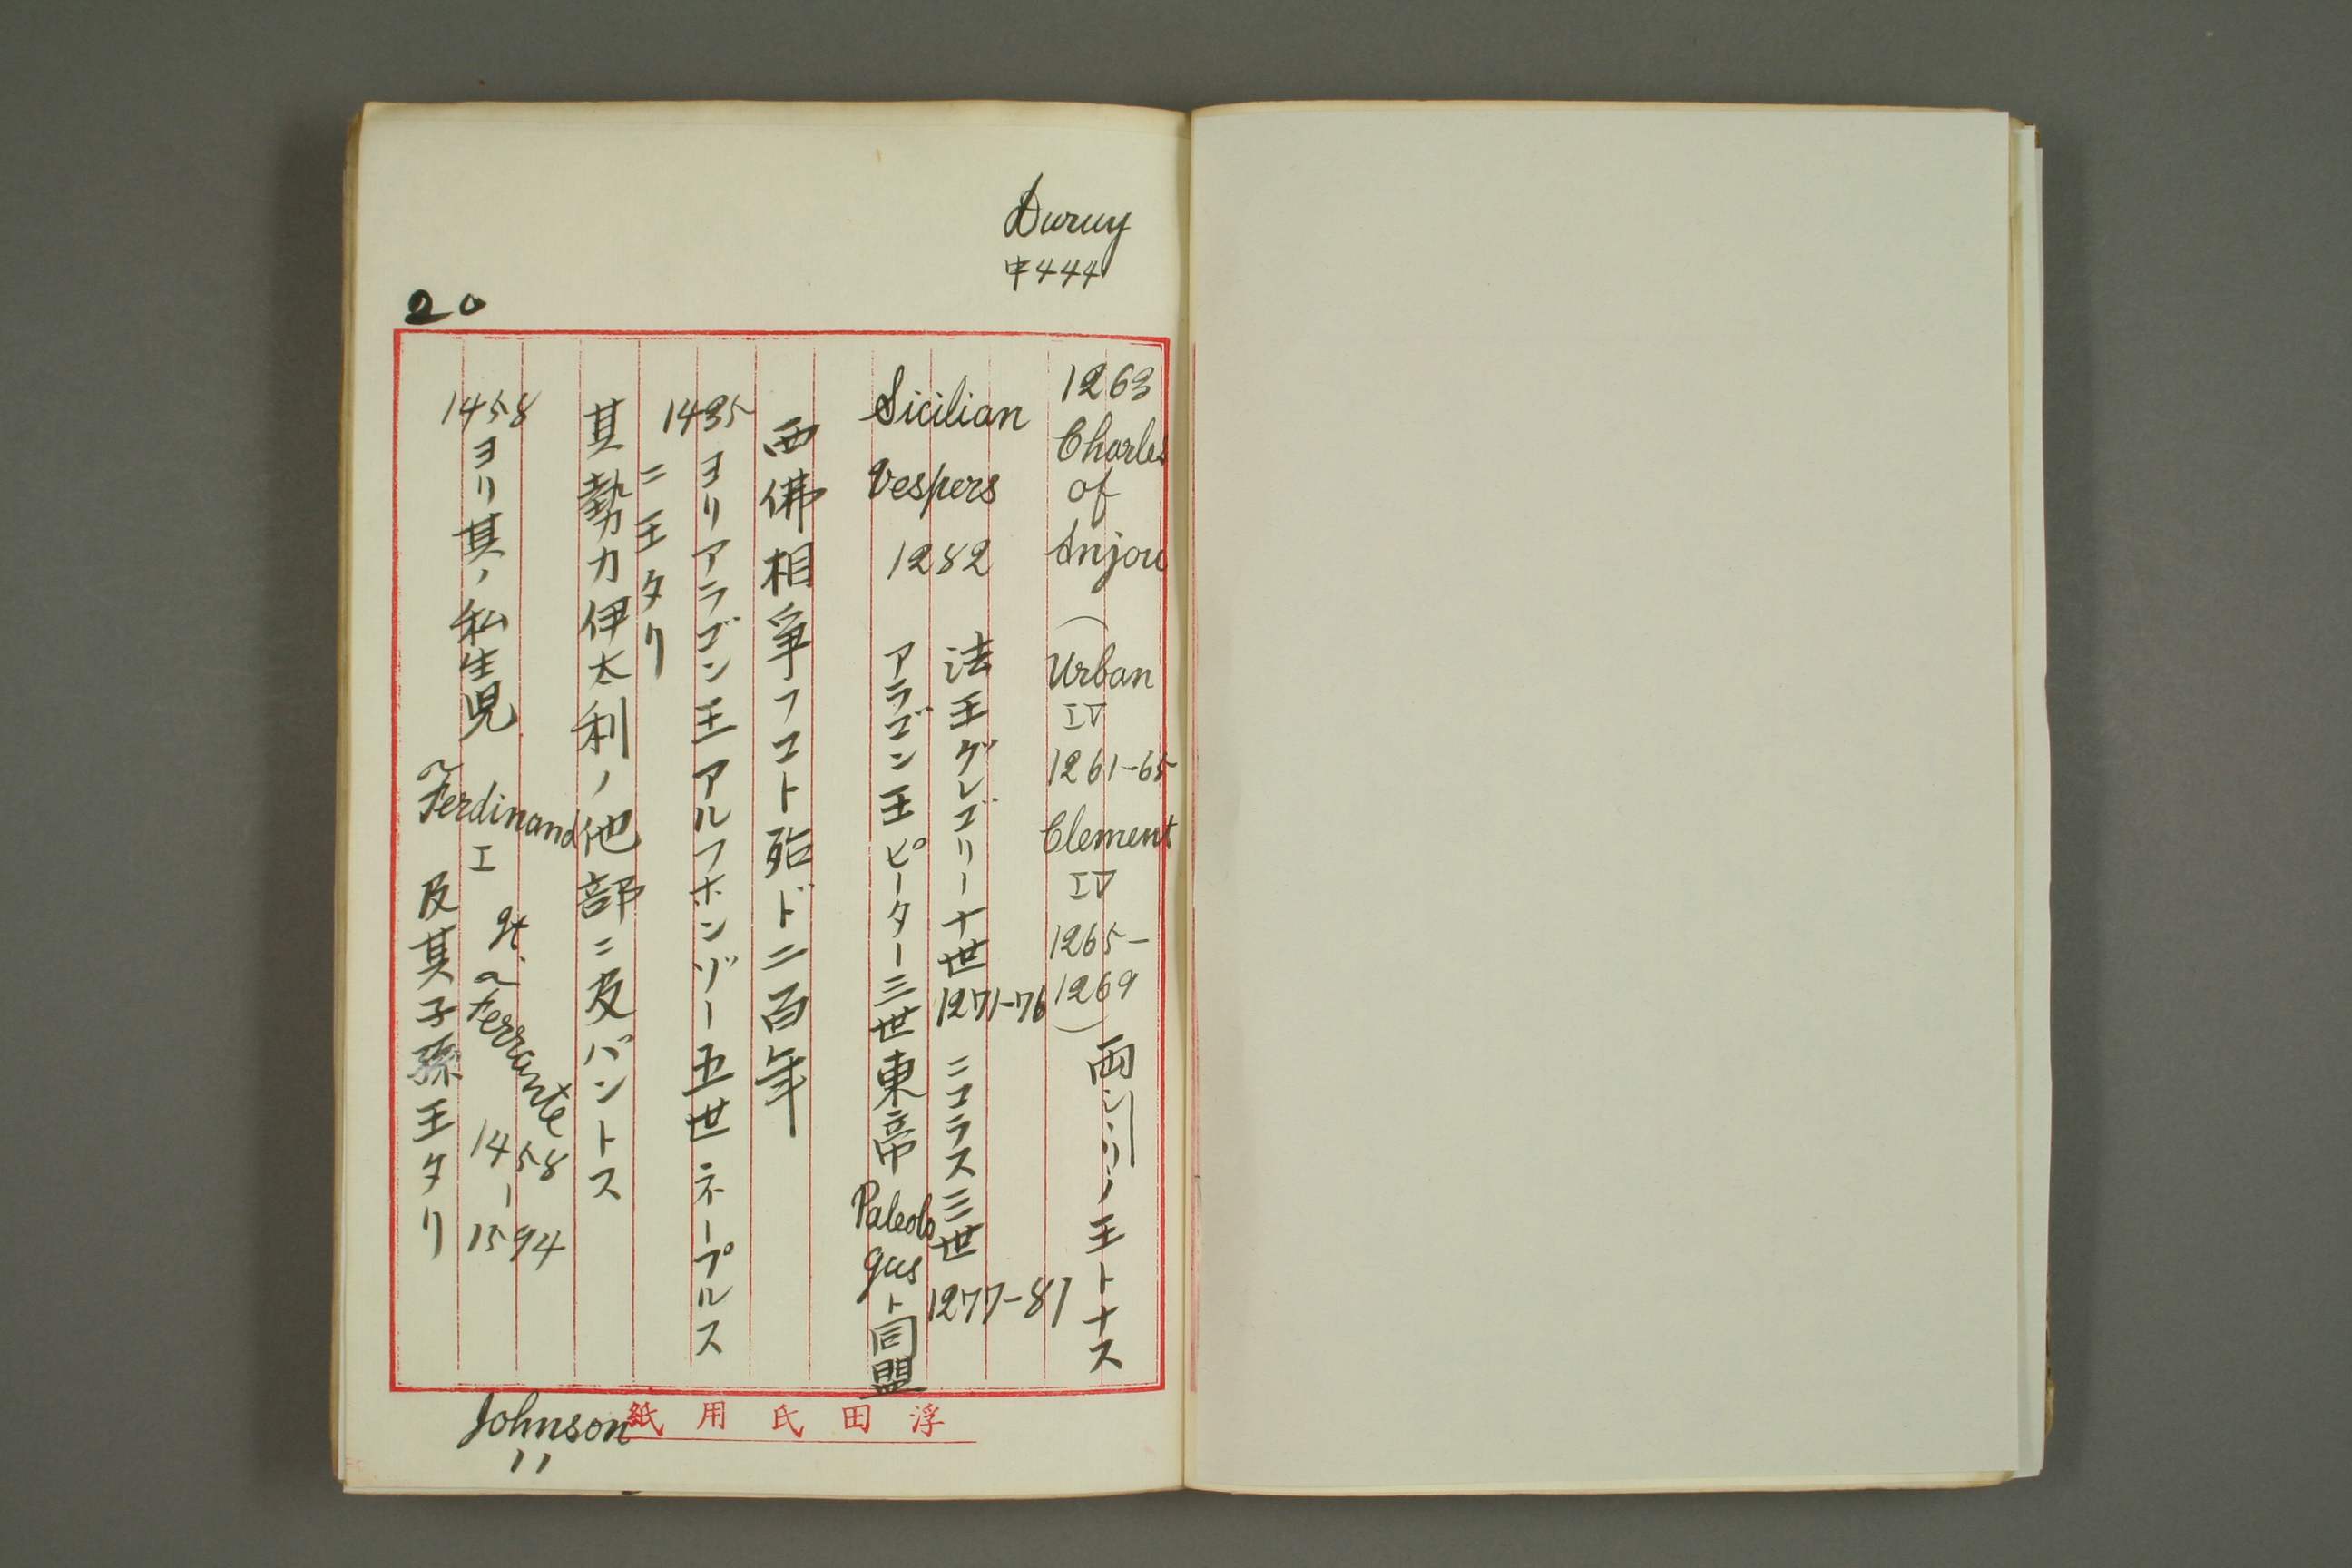 Duruy
中444
20
1263
Charles
of
Anjou
(
Urban
IV
1261-65
Clement
IV
1265-
1269
)
両シヽリノ王トナス
Sicilian
Vespers
1282
法王グレゴリー十世1271-76 ニコラス三世 1277-81
アラゴン王ピーター三世東帝
Paleolo
gus
ト同盟
西佛相爭フコト殆ド二百年
1435ヨリアラゴン王アルフホンゾー五世ネープルス
ニ王タリ
其勢力伊太利ノ他部ニ及バントス
1458ヨリ其ノ私生児
Ferdinand
I
It.
Ferrante
1458
-
1594
及其子孫王タリ
Johnson
11
浮田氏用紙